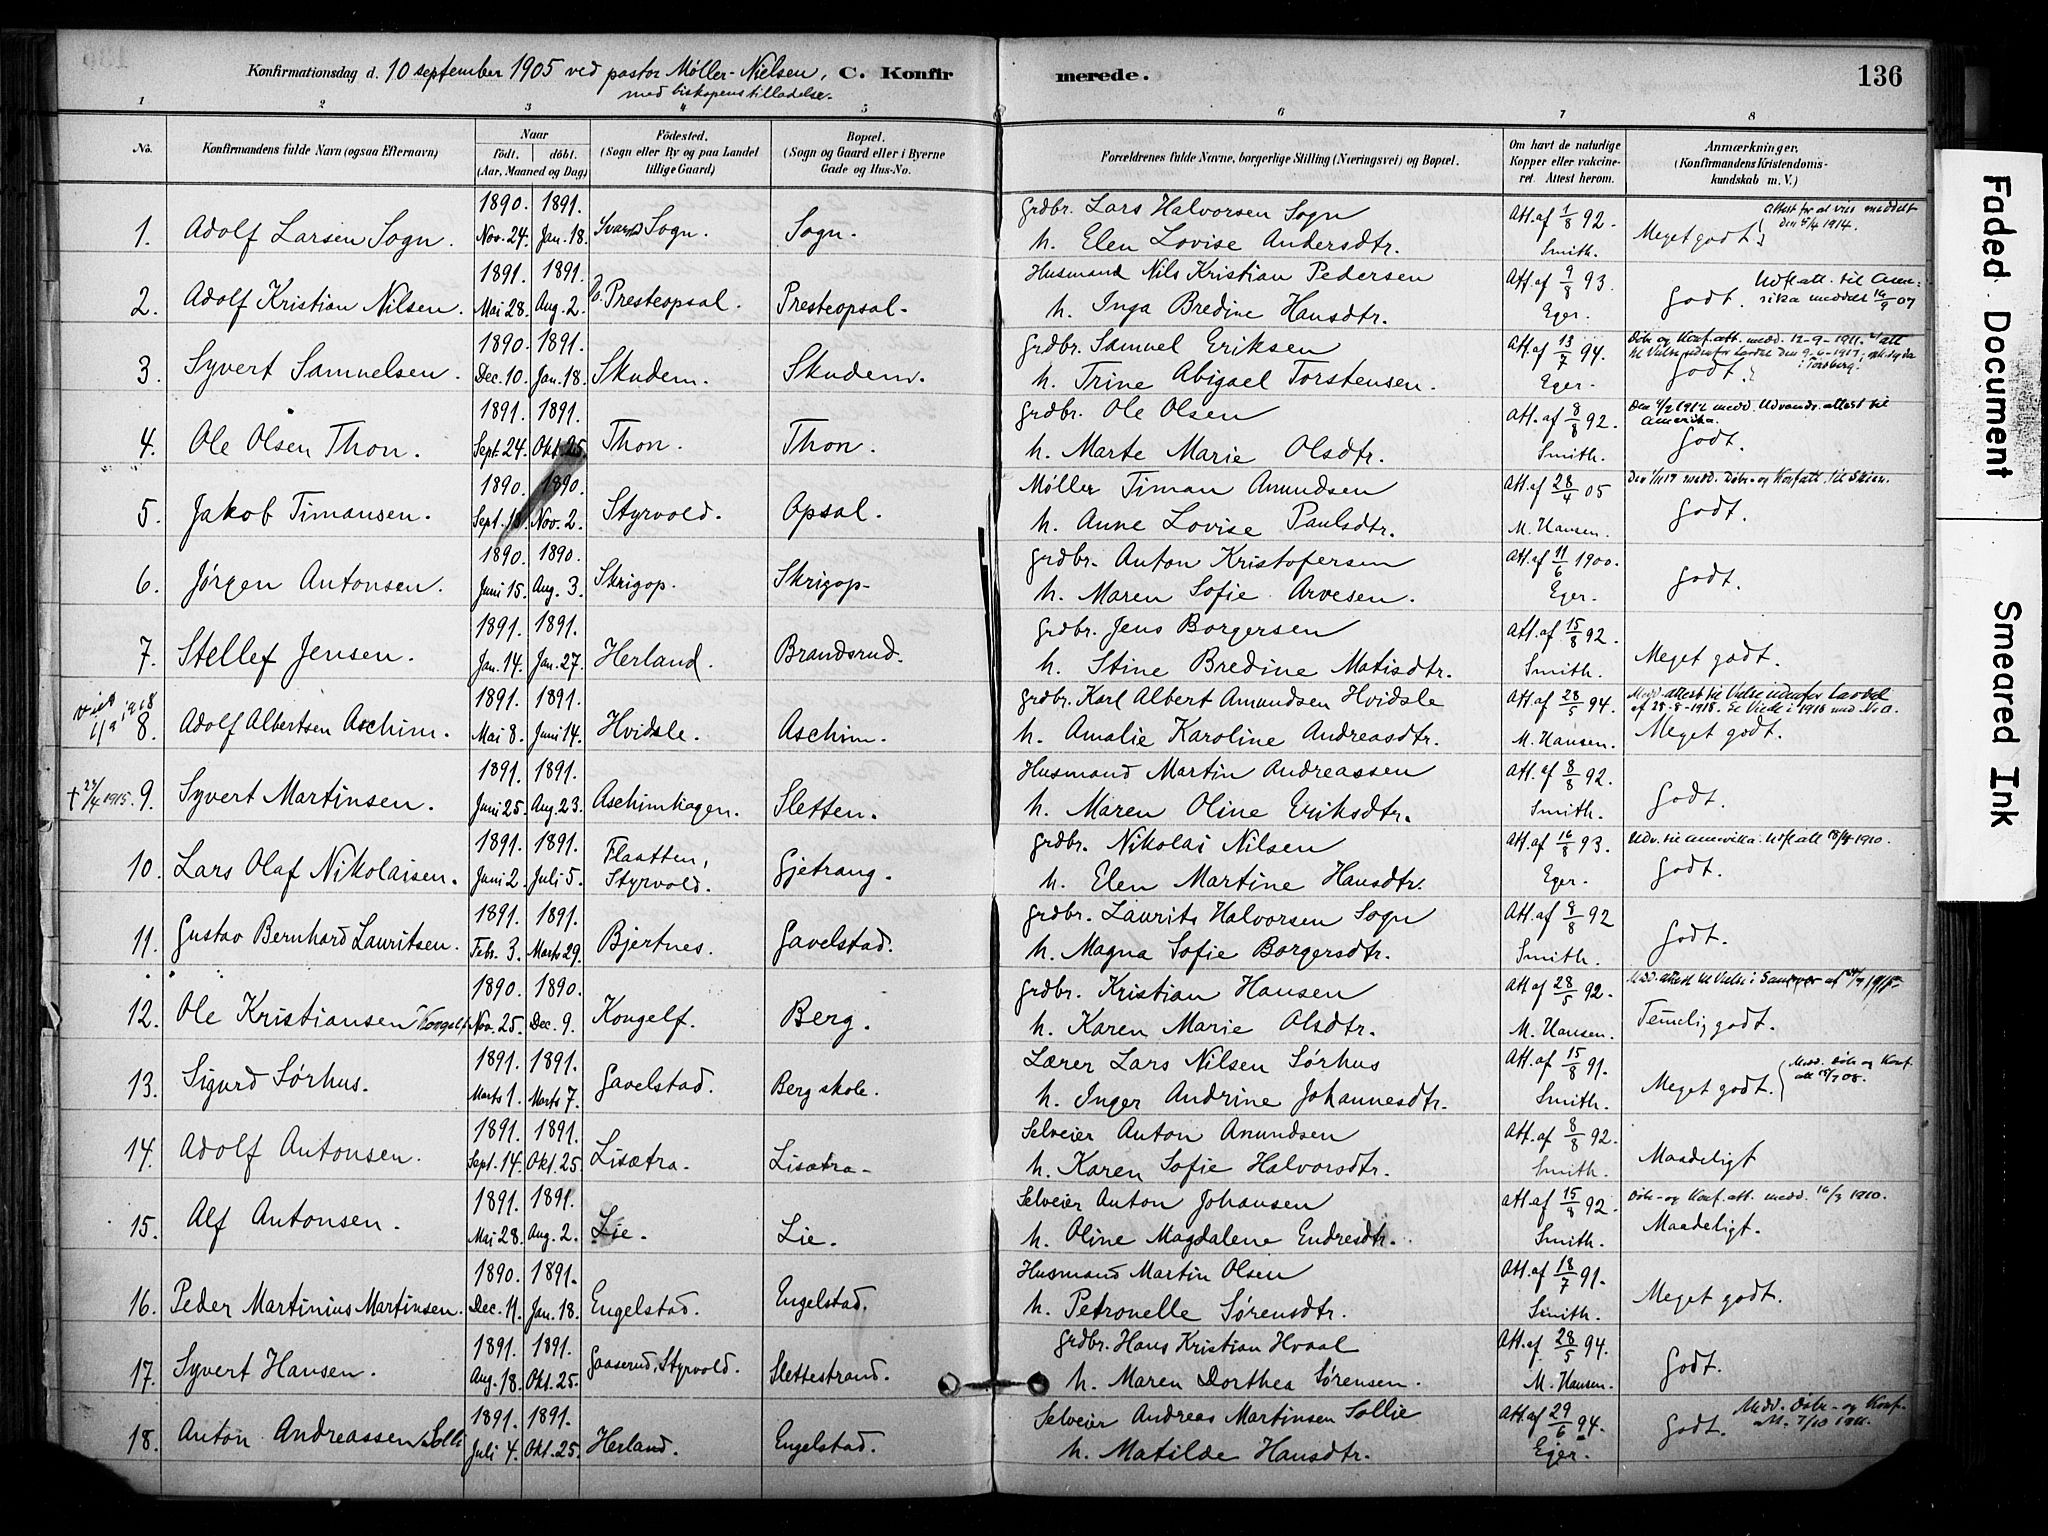 Konfirmationsdag d. 10 september 1905 ved pastor Møller-Nielsen, C. Konfirmerede. 136
med biskopens tilladelse.
1 2 3 4 5 6 7 8
No. Konfirmandens fulde Navn (ogsaa Efternavn) Naar født. døbt. (Aar, Maaned og Dag) Födested. (Sogn eller By og paa Landet tillige Gaard) Bopæl. (Sogn og Gaard eller i Byerne Gade og Hus-No. Forældrenes fulde Navne, borgerlige Stilling (Næringsvei) og Bopæl. Om havt de naturlige Kopper eller vakcineret. Attest herom. Anmærkninger, (Konfirmandens Kristendomskundskab m. V.)
1890. 1891. Grdbr. Lars Halvorsen Sogn Att. af 1/8 92. Attest for at vies meddelt
1. Adolf Larsen Sogn. Nov. 24. Jan. 18. Sogn. Sogn. h. Elen Lovise Andersdtr. Smith. Meget godt. 1914.
1891. 1891. Husmand Nils Kristian Pedersen Att. af 9/8 93. Udfl. att. til Amerika meddelt 14/9 07
2. Adolf Kristian Nilsen. Mai 28. Aug. 2. Presteopsal. Presteopsal. h. Inga Bredine Hansdtr. Eger. Godt.
1890. 1891. Grdbr. Samuel Eriksen Att. af 13/7 94. Døbe og Konf. att. medd. 12-9-1911.
3. Syvert Samuelsen. Dec. 10. Jan. 18. Skudem. Skudem. h. Trine Abigael Torstensen. Eger. Godt.
1891. 1891. Grdbr. Ole Olsen Att. af 8/8 92. medd. Udvandr. attest til Amerika.
4. Ole Olsen Thon. Sept. 24. Okt. 25. Thon. Thon. h. Marte Marie Olsdtr. Smith. Godt.
1890. 1890. Møller Timan Amundsen Att. af 28/4 05 medd. Døbe- og Konf att. til Skien.
5. Jakob Timansen. Sept. Nov. 2. Styrvold. Opsal. h. Anne Lovise Paulsdtr. M. Hansen. Godt.
1890. 1890. Grdbr. Anton Kristofersen Att. af 11/6 1900.
6. Jørgen Antonsen. Juni 15. Aug. 3. Skrigop. Skrigop. h. Maren Sofie Arvesen. Eger. Godt.
1891. 1891. Grdbr. Jens Borgersen Att. af 15/8 92.
7. Stellef Jensen. Jan. 14. Jan. 27. Herland. Brandsrud. h. Stine Bredine Matisdtr. Smith. Meget godt.
viet 1918 1891. 1891. Grdbr. Karl Albert Amundsen Hvidsle Att. af 28/5 94. Medd. attest til Vielse udenfor Lardal af 28-8-1918. Se Viede i 1918
8. Adolf Albertsen Aschim. Mai 8. Juni 14. Hvidsle. Aschim. h. Amalie Karoline Andreasdtr. M. Hansen. Meget godt.
1891. 1891. Husmand Martin Andreassen Att. af 8/8 92.
† 1915. 9. Syvert Martinsen. Juni 25. Aug. 23. Aschimhagen. Sletten. h. Maren Oline Eriksdtr. Smith. Godt.
1891. 1891. Flaatten, Grdbr. Nikolai Nilsen Att. af 16/8 93. Udv. til Amerika. Udfl att 1910.
10. Lars Olaf Nikolaisen. Juni 2. Juli 5. Styrvold. Gjetrang. h. Elen Martine Hansdtr. Eger. Godt.
1891. 1891. Grdbr. Laurits Halvorsen Sogn Att. af 8/8 92
11. Gustav Bernhard Lauritsen. Febr. 3. Marts 29. Bjertnes. Gavelstad. h. Magna Sofie Borgersdtr. Smith. Godt.
1890. 1890. Grdbr. Kristian Hansen Att af 28/5 92. Medd. attest til Vielse i
12. Ole Kristiansen Kongelf Nov. 25. Dec. 9. Kongelf. Berg. h. Karen Marie Olsdtr. M. Hansen. Temelig godt.
1891. 1891. Lærer Lars Nilsen Sørhus Att. af 15/8 91. Medd. Døbe og Konf. att. 08.
13. Sigurd Sørhus. Marts 1. Marts 7. Gavelstad. Berg skole. h. Inger Andrine Johannesdtr. Smith. Meget godt.
1891. 1891. Selveier Anton Amundsen Att. af 8/8 92.
14. Adolf Antonsen. Sept. 14. Okt. 25. Lisætra. Lisætra. h. Karen Sofie Halvorsdtr. Smith. Maadeligt
1891. 1891. Selveier Anton Johansen Att. af 15/8 92. Døbe- og Konf. att. medd. 16/3 1910.
15. Alf Antonsen. Mai 28. Aug. 2. Lie. Lie. h. Oline Magdalene Endresdtr. Smith. Maadeligt.
1890. 1891. Husmand Martin Olsen Att. af 18/7 91.
16. Peder Martinius Martinsen. Dec. 11. Jan. 18. Engelstad. Engelstad. h. Petronelle Sørensdtr. Smith. Meget godt.
1891. 1891. Grdbr. Hans Kristian Hvaal Att. af 28/5 94.
17. Syvert Hansen. Aug. 18. Okt. 25. Gaaserud, Styrvold. Slettestrand. h. Maren Dorthea Sørensen. M. Hansen. Godt.
1891. 1891. Selveier Andreas Martinsen Sollie Att. af 29/6 94. Medd. Døbe- og Konf. att. 7/10 1911.
18. Anton Andreassen Solli Juli 4. Okt. 25. Herland. Engelstad. h. Matilde Hansdtr. Eger. Godt.
Faded Document
Smeared Ink